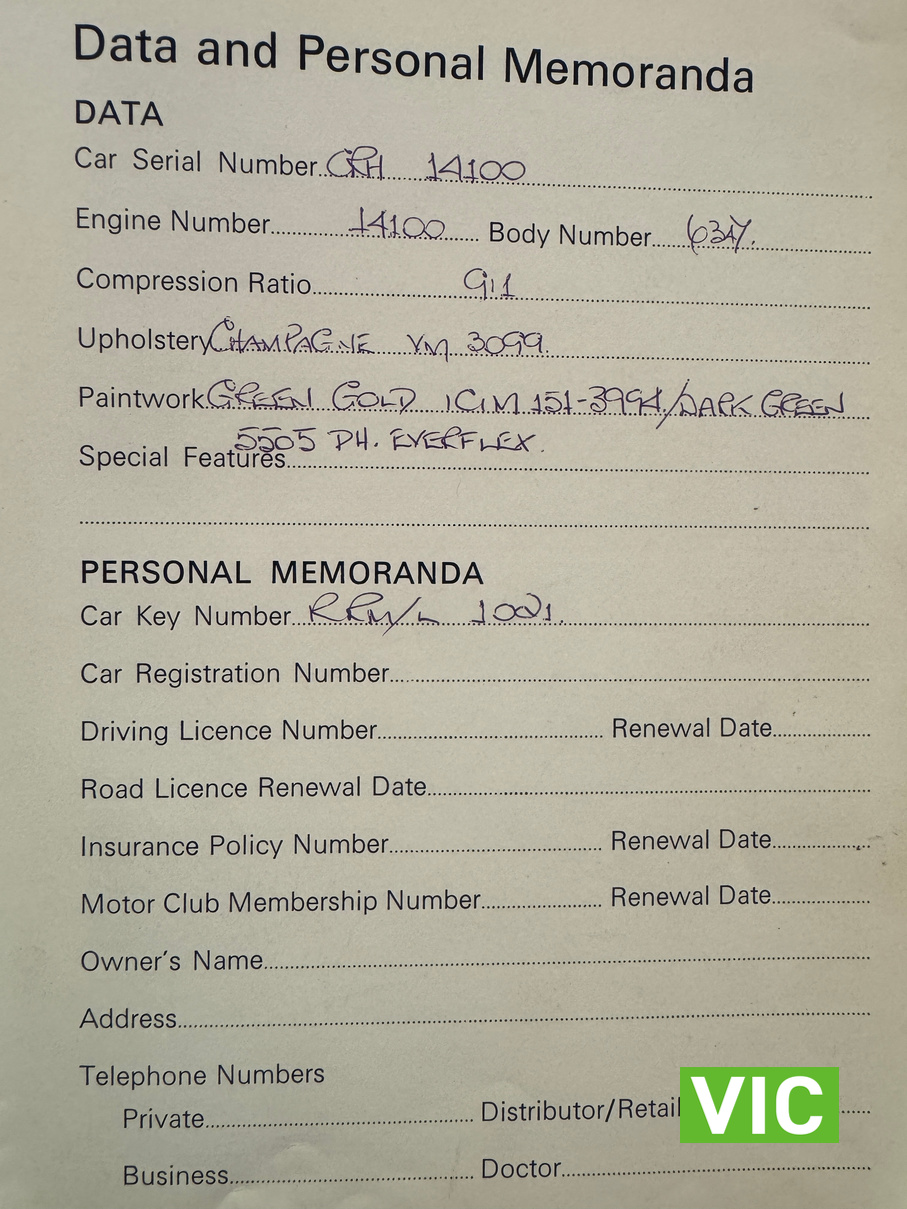 Data and Personal Memoranda
DATA
Car Serial Number CRH 14100
Engine Number 14100 Body Number
Compression Ratio 9:1
Upholstery CHAMPAGNE VM 3099.
Paintwork GREEN GOLD ICIM 151-3994/DARK GREEN
5505 DH. EVERFLEX.
Special Features
PERSONAL MEMORANDA
Car Key Number RRM/L 1001.
Car Registration Number
Driving Licence Number Renewal Date
Road Licence Renewal Date
Insurance Policy Number Renewal Date
Motor Club Membership Number Renewal Date
Owner's Name
Address
Telephone Numbers
Private Distributor/Retail
VIC
Business Doctor